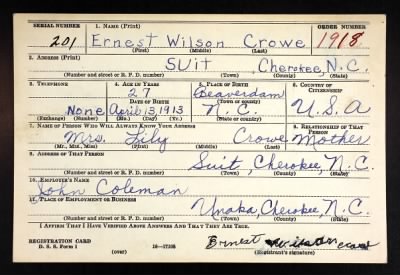 SERIAL NUMBER 1. NAME (Print) ORDER NUMBER
201 Ernest Wilson Crowe 1918
(First) (Middle) (Last)
2. ADDRESS (Print)
Suit, Cherokee, N.C.
(Number and street or R. F. D. number) (Town) (County) (State)
3. TELEPHONE 4. AGE IN YEARS 5. PLACE OF BIRTH 6. COUNTRY OF CITIZENSHIP
27 Beaverdam
DATE OF BIRTH (Town or county)
None April 13, 1913 N.C. U.S.A
(Exchange) (Number) (Mo.) (Day) (Yr.) (State or country)
7. NAME OF PERSON WHO WILL ALWAYS KNOW YOUR ADDRESS 8. RELATIONSHIP OF THAT PERSON
Mrs. Lily Crowe Mother
(Mr., Mrs., Miss) (First) (Middle) (Last)
9. ADDRESS OF THAT PERSON
Suit, Cherokee, N.C.
(Number and street or R. F. D. number) (Town) (County) (State)
10. EMPLOYER'S NAME
John Coleman
11. PLACE OF EMPLOYMENT OR BUSINESS
Unaka, Cherokee, N.C.
(Number and street or R. F. D. number) (Town) (County) (State)
I AFFIRM THAT I HAVE VERIFIED ABOVE ANSWERS AND THAT THEY ARE TRUE.
REGISTRATION CARD
D. S. S. Form 1 16—17105
(over) (Registrant's signature)